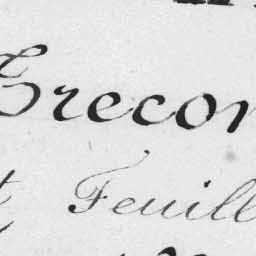 Trecon
Feuill